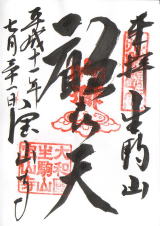 奉拝 生駒山
歓喜天
宝山寺
平成十一年
七月三十一日
大和國
生駒山
寳山寺